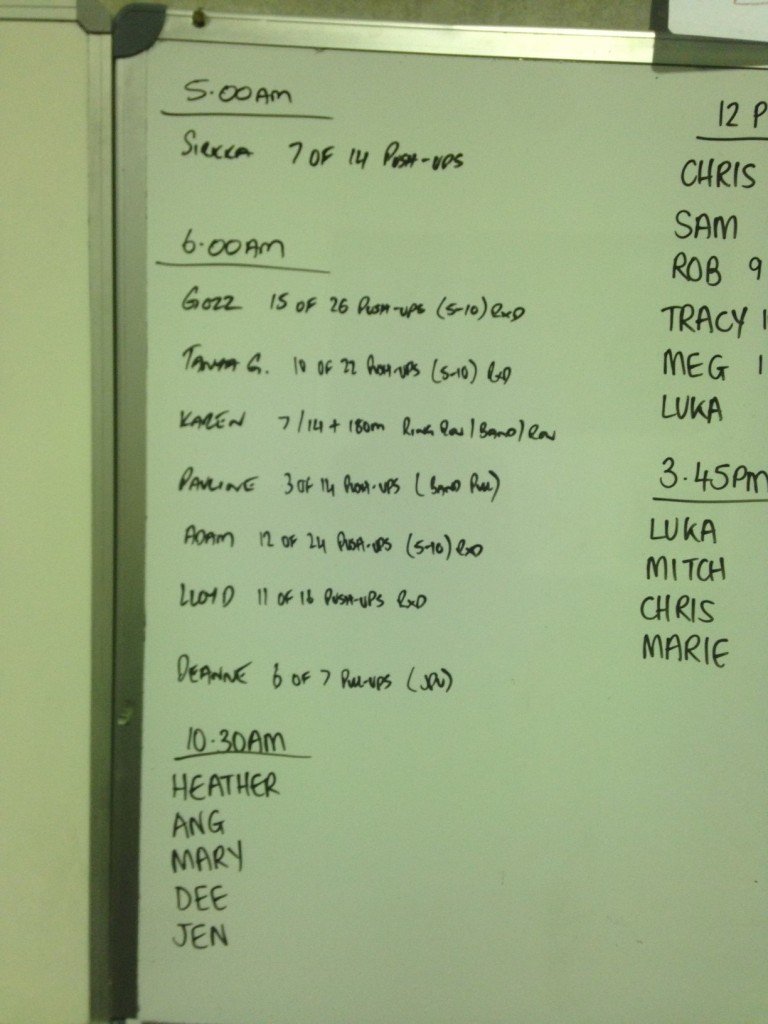 5.00AM
SIRKKA 7 OF 14 PUSH-UPS
6.00AM
GOZZ 15 OF 26 PUSH-UPS (5-10) RXD
TANYA G. 10 OF 22 PUSH-UPS (5-10) RXD
KAREN 7/14 + 180m RING ROW/BAND/ROW
PAULINE 3 OF 14 PUSH-UPS (BAND PULL)
ADAM 12 OF 24 PUSH-UPS (5-10) RXD
LLOYD 11 OF 16 PUSH-UPS RXD
DEANNE 6 OF 7 PULL-UPS
10.30AM
HEATHER
ANG
MARY
DEE
JEN
12 P
CHRIS
SAM
ROB 9
TRACY 1
MEG 1
LUKA
3.45PM
LUKA
MITCH
CHRIS
MARIE